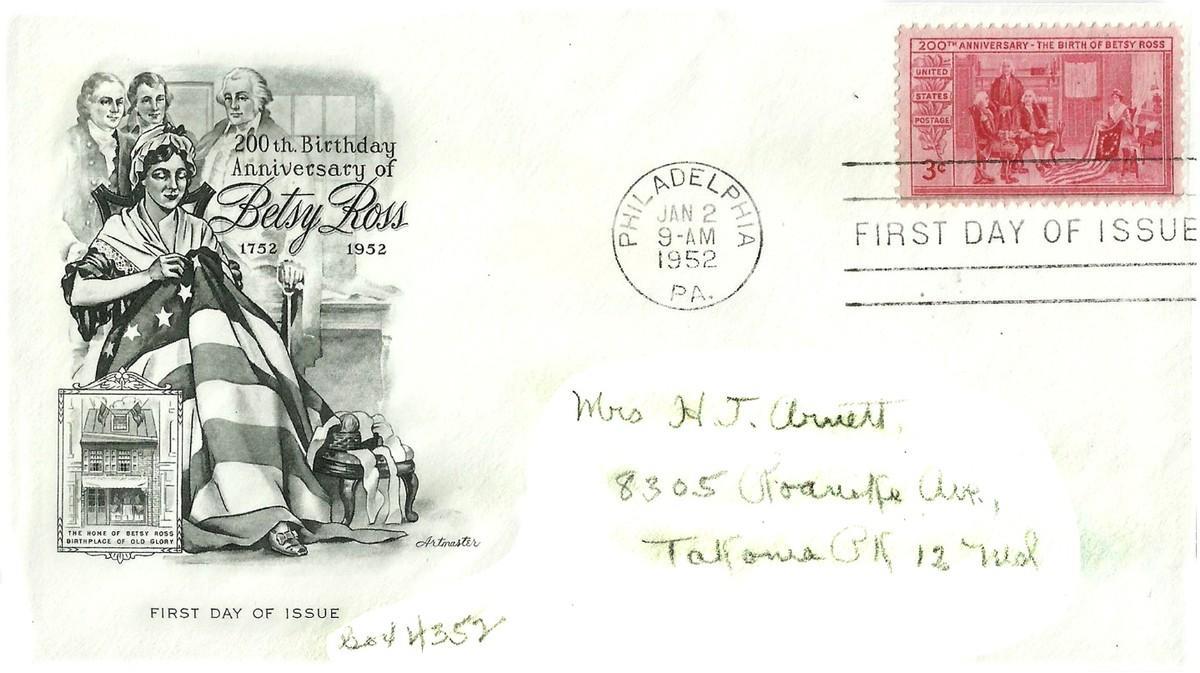 200TH ANNIVERSARY - THE BIRTH OF BETSY ROSS
UNITED
STATES
POSTAGE
3¢
200th. Birthday
Anniversary of
Betsy Ross
1752 1952
PHILADELPHIA
JAN 2
9-AM
1952
PA.
FIRST DAY OF ISSUE
Mrs H. J. Arnett,
8305 Roanoke Ave.,
Takoma Pk 12 Md
THE HOME OF BETSY ROSS
BIRTHPLACE OF OLD GLORY
Artmaster
FIRST DAY OF ISSUE
Box 4352